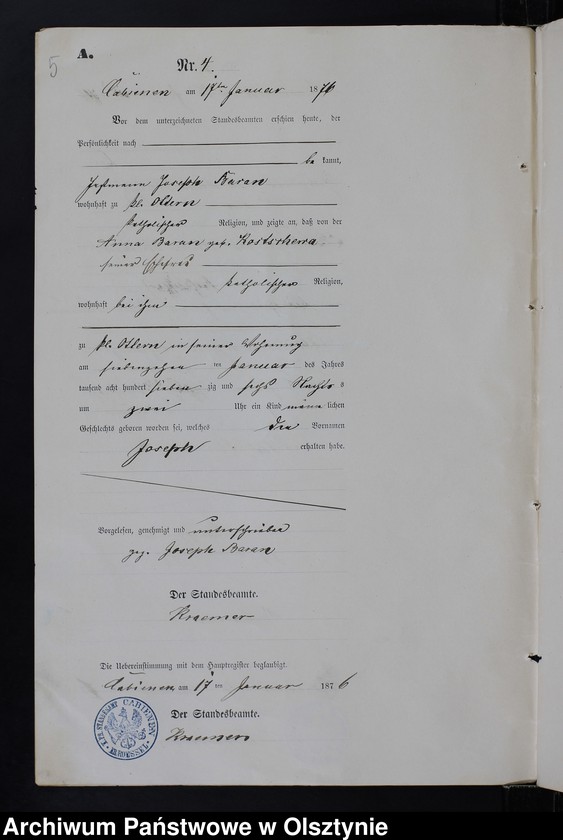 5
A.
Nr. 4.
Cabienen am 17ten Januar 1876
Vor dem unterzeichneten Standesbeamten erschien heute, der
Persönlichkeit nach
be kannt,
Joseph Baran
wohnhaft zu Kl. Ottern
katholischer Religion, und zeigte an, daß von der
Anna Baran geb. Kostschewa
seiner Ehefrau
katholischer Religion,
wohnhaft bei ihm
zu Kl. Ottern in seiner Wohnung
am siebenzehnten Januar des Jahres
tausend acht hundert sieben zig und sechs Nachts
um zwei Uhr ein Kind männlichen
Geschlechts geboren worden sei, welches den Vornamen
Joseph erhalten habe.
Vorgelesen, genehmigt und unterschrieben
gez. Joseph Baran
Der Standesbeamte.
Kraemer
Die Uebereinstimmung mit dem Hauptregister beglaubigt.
Cabienen am 17 ten Januar 1876
Der Standesbeamte.
Kraemer
STANDESAMT CABIENEN
KR. ROESSEL
Archiwum Państwowe w Olsztynie